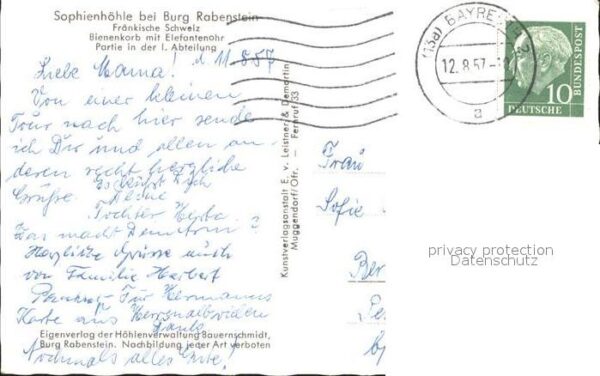 Sophienhöhle bei Burg Rabenstein
Fränkische Schweiz
Bienenkorb mit Elefantenohr
Partie in der I. Abteilung
d 11 8 57
Liebe Mama!
Von einer kleinen
Tour nach hier sende
ich Dir und allen an-
deren recht herzliche
Grüße. Es
Deine
Tochter Herta.
Was macht ?
Herzliche Grüsse auch
von Familie Herbert
Für Hermanns
Karte aus
Dank.
Nochmals alles Gute!
Eigenverlag der Höhlenverwaltung Bauernschmidt,
Burg Rabenstein. Nachbildung jeder Art verboten
Kunstverlagsanstalt E. v. Leistner & Demartin
Muggendorf/Ofr. - Fernruf 33
(13a) BAYREUTH 2
12.8.57
a
10
DEUTSCHE
BUNDESPOST
Frau
Sofie
Ber
privacy protection
Datenschutz